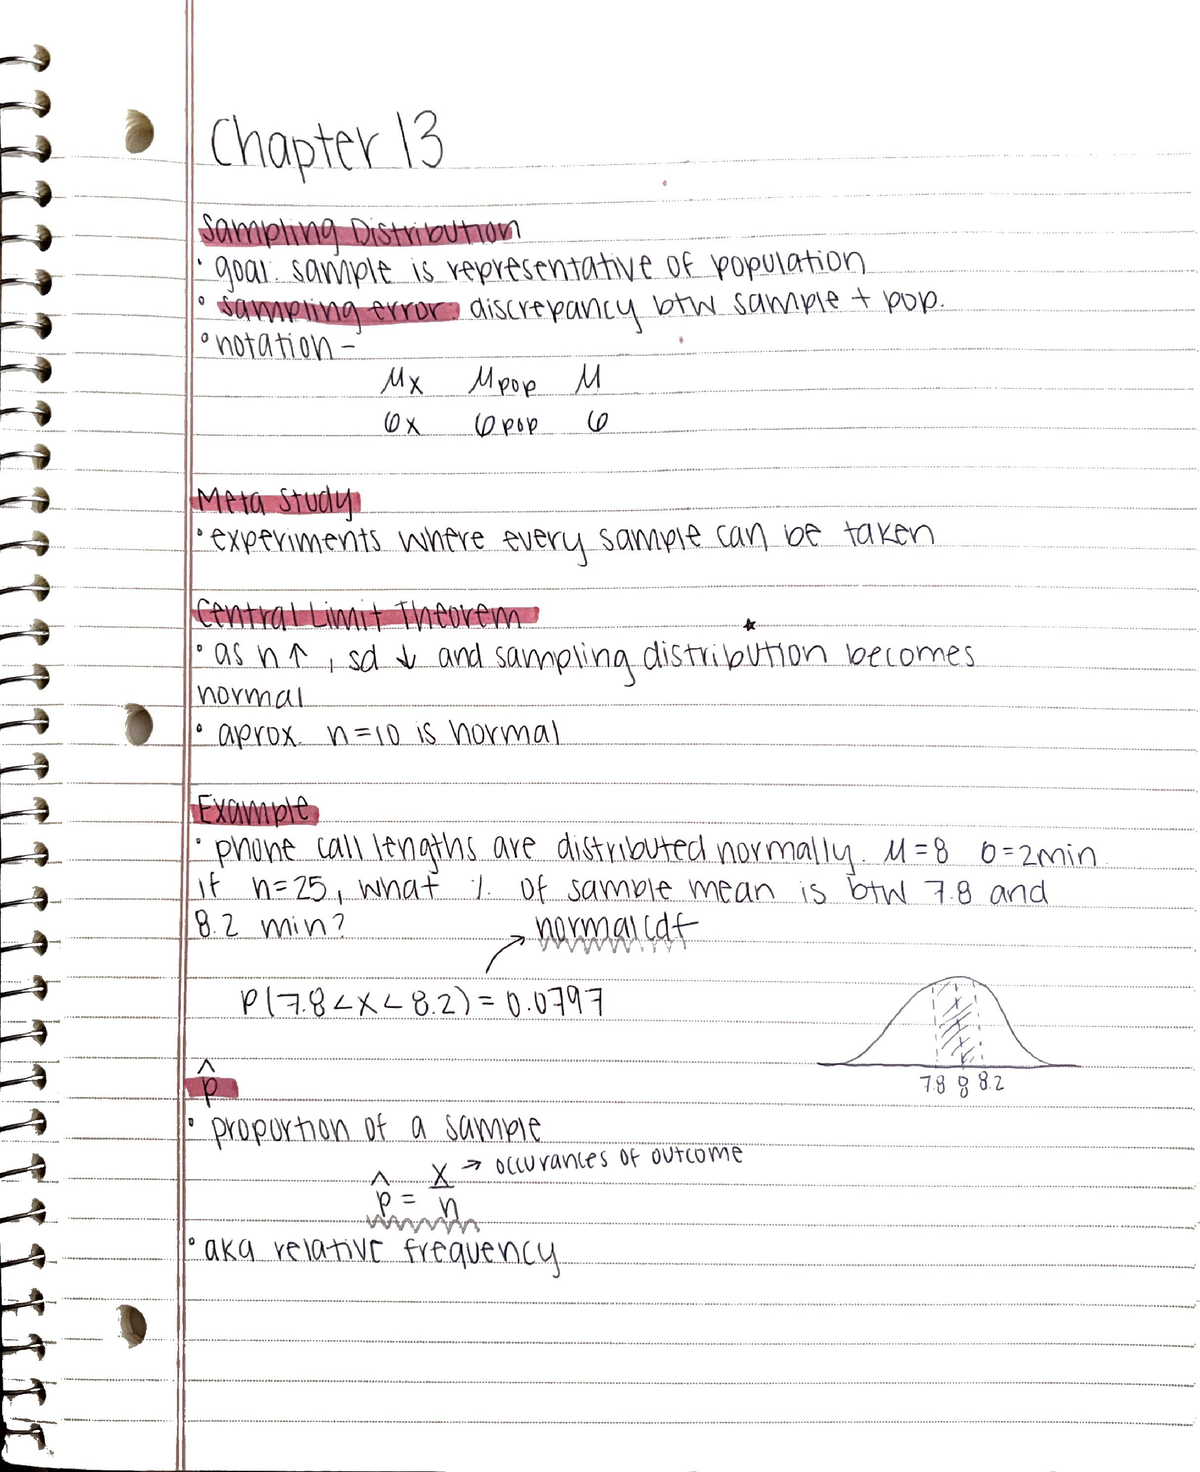 Chapter 13
Sampling Distribution
· goal: sample is representative of population
° sampling error: discrepancy btw sample + pop.
° notation -
μx μpop μ
σx σpop σ
Meta Study
· experiments where every sample can be taken
Central Limit Theorem
· as n↑, sd ↓ and sampling distribution becomes
normal
° aprox. n=10 is normal
Example
· phone call lengths are distributed normally. μ=8 σ=2min
if n=25, what % of sample mean is btw 7.8 and
8.2 min?
normalcdf
P(7.8<x<8.2) = 0.0797
7.8 8 8.2
p̂
· proportion of a sample
p̂ = x/n → occurances of outcome
° aka relative frequency